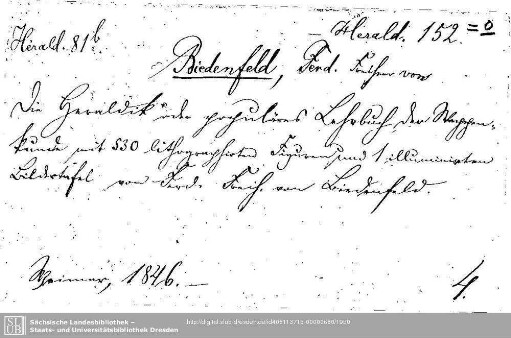 Herald. 81b.
Herald. 152 = 0
Biedenfeld, Ferd. Freiherr von
Die Heraldik oder populäres Lehrbuch der Wappen-
kunde mit 530 lithographirten Figuren und 1 illuminirten
Bildertafel von Ferd. Freih. von Biedenfeld.
Weimar, 1846. —
4.
Sächsische Landesbibliothek –
Staats- und Universitätsbibliothek Dresden